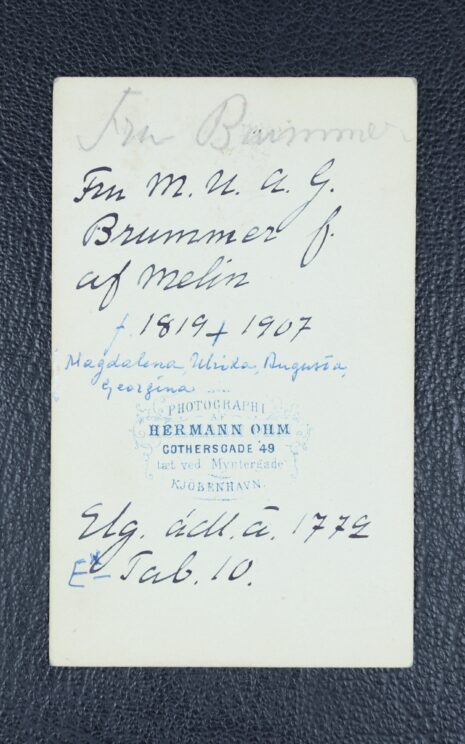 Fru Brummer
Fru M. U. A. G.
Brummer f.
af Melin
f. 1819 + 1907
Magdalena Ulrika, Augusta,
Georgina
PHOTOGRAPHI
AF
HERMANN OHM
GOTHERSGADE 49
tæt ved Myntergade
KJÖBENHAVN.
Elg. ädl. ä. 1772
Ex Tab. 10.